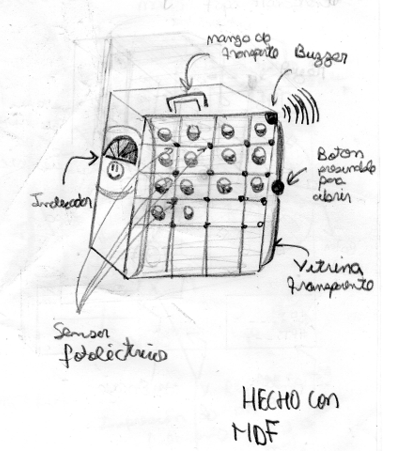 mango de
transporte
Buzzer
Boton
presionable
para
abrir
Indicador
Vitrina
transparente
Sensor
fotoléctrico
HECHO con
MDF